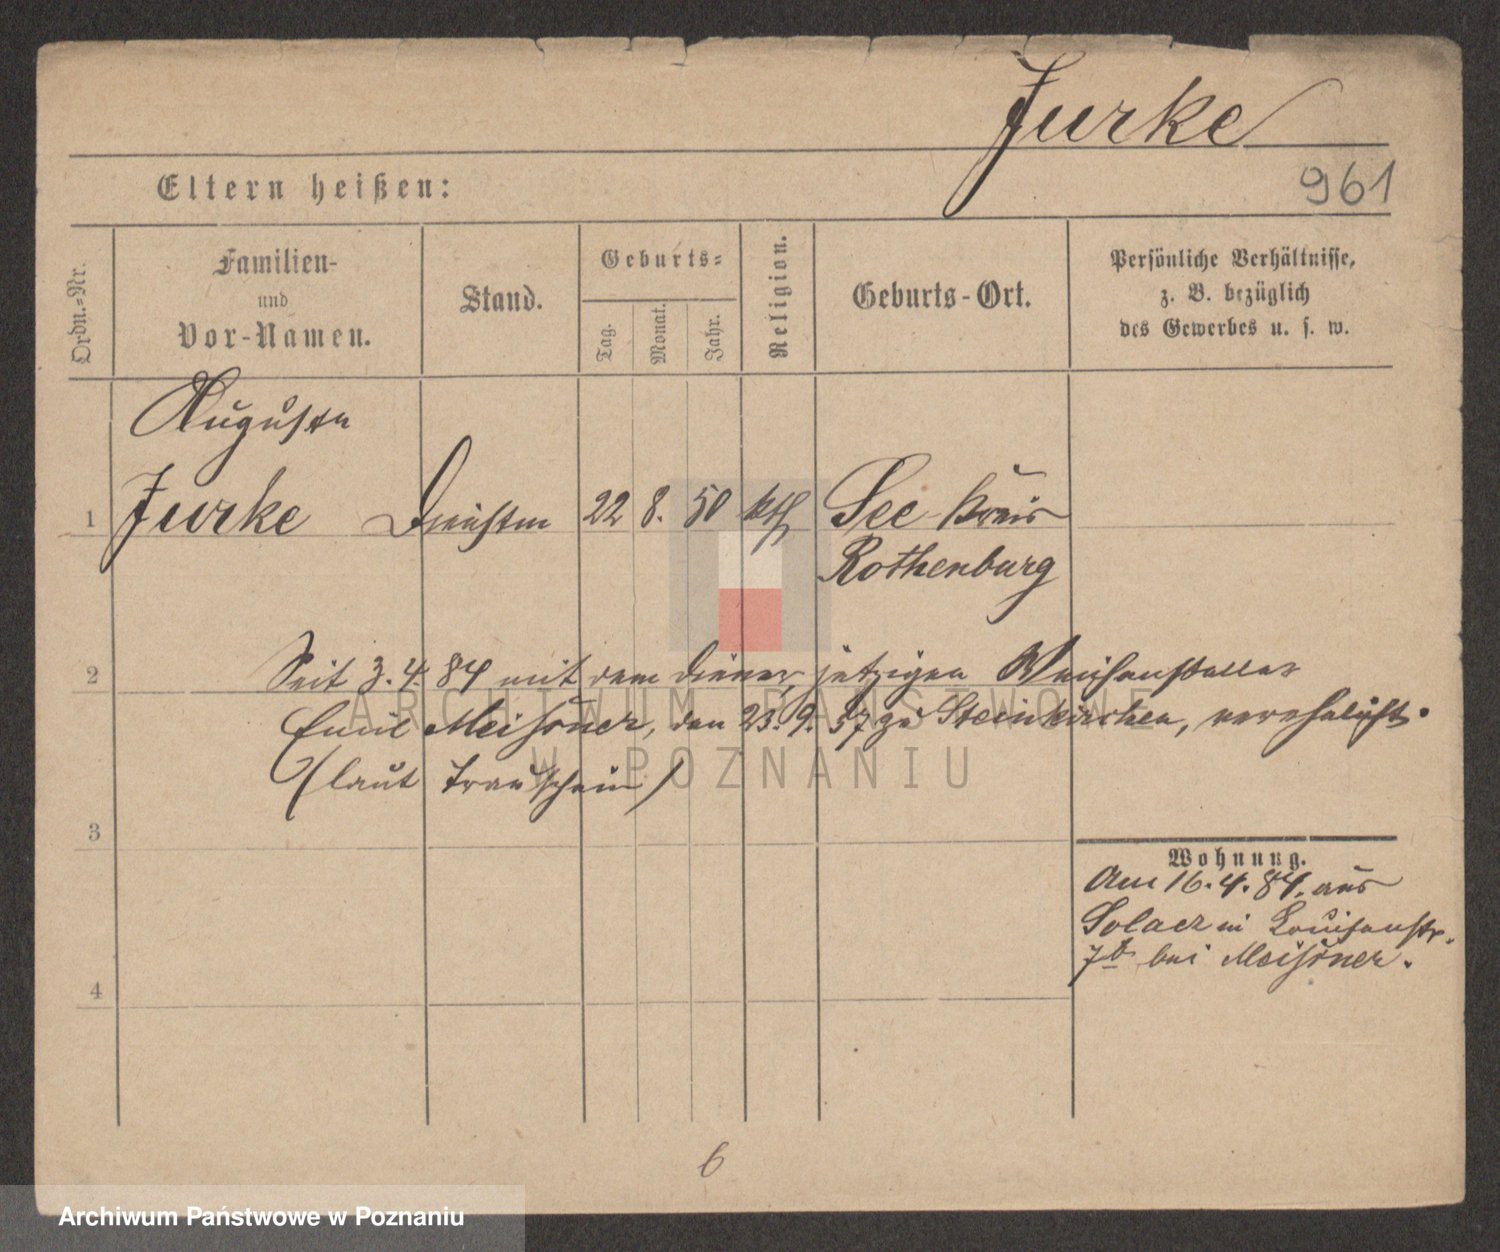 Jurke
961
Eltern heißen:
Ordn.-Nr.
Familien-
und
Vor-Namen.
Stand.
Geburts-
Tag.
Monat.
Jahr.
Religion.
Geburts-Ort.
Persönliche Verhältnisse,
z. B. bezüglich
des Gewerbes u. s. w.
Auguste
1 Jurke 22 8. 50 kth See Kreis
Rothenburg
2 Seit 3. 4. 84 mit dem Diener, jetzigen Weichensteller
Emil Meissner, den 23. 9. 57 zu Steinkirchen, verehelicht.
(laut Trauschein)
3
4
Wohnung.
Am 16. 4. 84. aus
Solacz in Louisenstr.
7b bei Meissner.
6
ARCHIWUM PAŃSTWOWE
W POZNANIU
Archiwum Państwowe w Poznaniu